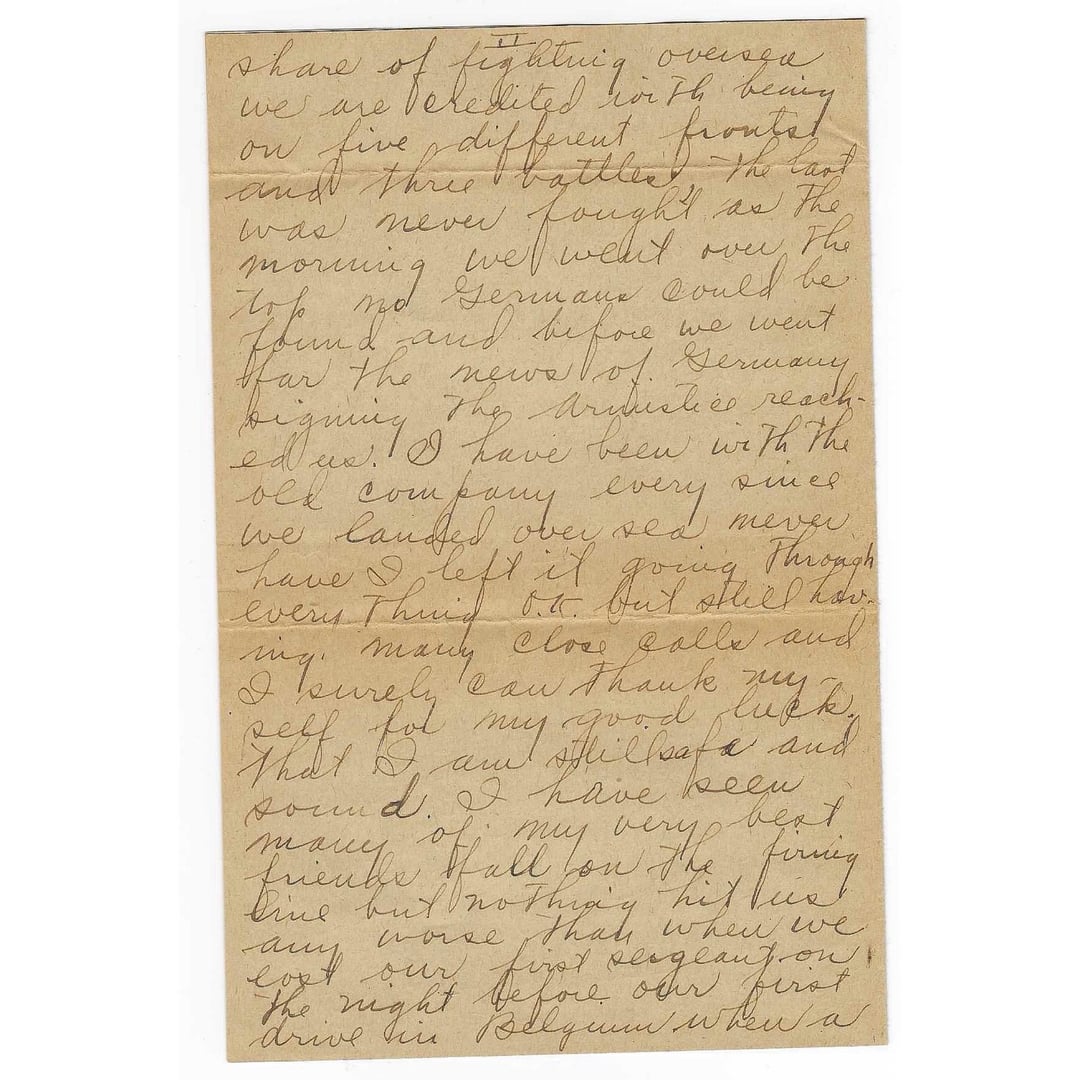 II
share of fighting oversea
we are credited with being
on five different fronts
and three battles. The last
was never fought as the
morning we went over the
top no Germans could be
found and before we went
far the news of Germany
signing the Armistice reach-
ed us. I have been with the
old company every since
we landed over sea never
have I left it going through
every thing O.K. but still hav-
ing. many close calls and
I surely can thank my-
self for my good luck.
that I am still safe and
sound. I have seen
many of my very best
friends fall on the firing
line but nothing hit us
any worse than when we
lost our first sergeant on
the night before our first
drive in Belgium when a